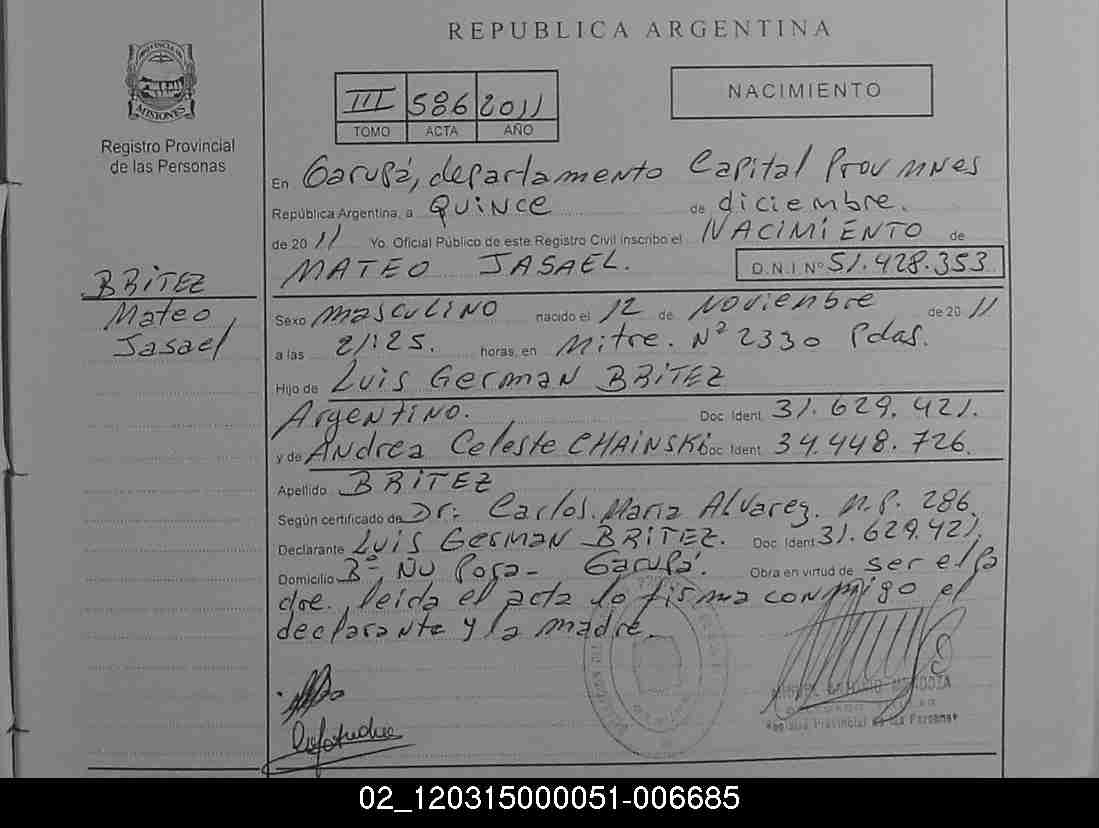 REPUBLICA ARGENTINA
III 586 2011
TOMO ACTA AÑO
NACIMIENTO
MISIONES
Registro Provincial
de las Personas
En Garupá, departamento Capital Prov MNES
República Argentina, a QUINCE de diciembre.
de 2011 Yo. Oficial Público de este Registro Civil inscribo el NACIMIENTO de
MATEO JASAEL. D.N.I Nº 51.428.353
BRITEZ
Mateo
Jasael
Sexo masculino nacido el 12 de Noviembre de 2011
a las 21:25. horas, en Mitre. Nº 2330 Pdas.
Hijo de Luis German BRITEZ
Argentino. Doc Ident. 31.629.421.
y de Andrea Celeste CHAINSKI Doc Ident. 34.448.726.
Apellido BRITEZ
Según certificado de Dr: Carlos. Maria Alvarez. M.P. 286.
Declarante Luis German BRITEZ. Doc Ident 31.629.421.
Domicilio Bº Ñu Pora - Garupá. Obra en virtud de ser el pa
dre. leida el acta lo firma conmigo el
declarante y la madre.
MENDOZA
Registro Provincial de las Personas
02_120315000051-006685